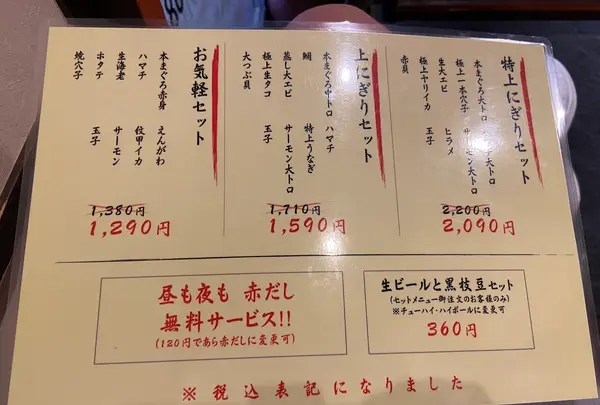 特上にぎりセット
本まぐろ大トロ 大トロ
極上一本穴子 サーモン大トロ
生大エビ ヒラメ
極上ヤリイカ 玉子
赤貝
2,200円
2,090円
上にぎりセット
本まぐろ中トロ ハマチ
鯛 特上うなぎ
蒸し大エビ サーモン大トロ
極上生タコ 玉子
大つぶ貝
1,710円
1,590円
お気軽セット
本まぐろ赤身 えんがわ
ハマチ 紋甲イカ
生海老 サーモン
ホタテ 玉子
焼穴子
1,380円
1,290円
昼も夜も 赤だし
無料サービス!!
(120円であら赤だしに変更可)
生ビールと黒枝豆セット
(セットメニュー御注文のお客様のみ)
※チューハイ・ハイボールに変更可
360円
※ 税込表記になりました